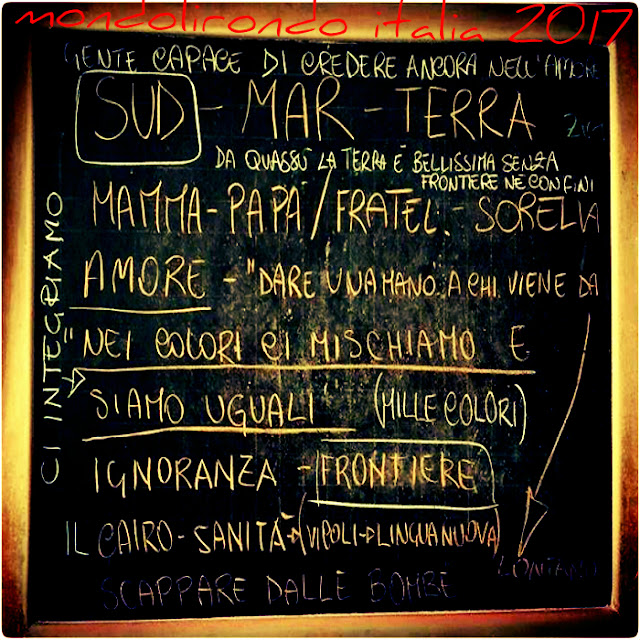 mondolirondo italia 2017
GENTE CAPACE DI CREDERE ANCORA NELL'AMORE
SUD - MAR - TERRA
DA QUASSÙ LA TERRA È BELLISSIMA SENZA
FRONTIERE NE CONFINI
MAMMA - PAPÀ / FRATEL. - SORELLA
AMORE - "DARE UNA MANO" A CHI VIENE DA
NEI COLORI CI MISCHIAMO E
SIAMO UGUALI (MILLE COLORI)
CI INTEGRIAMO =>
IGNORANZA - FRONTIERE
IL CAIRO - SANITÀ → (VICOLI → LINGUA NUOVA)
LONTANO
SCAPPARE DALLE BOMBE